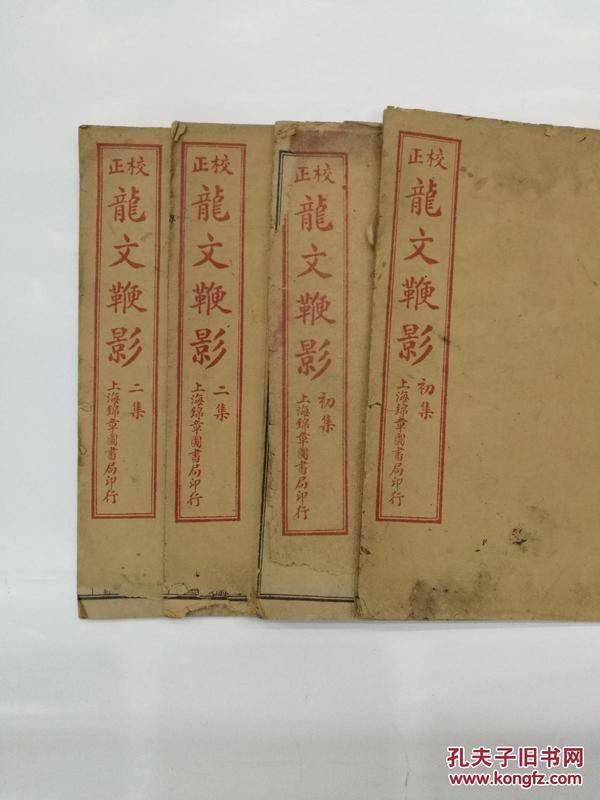 校正
龍文鞭影
初集
上海錦章圖書局印行
校正
龍文鞭影
初集
上海錦章圖書局印行
校正
龍文鞭影
二集
上海錦章圖書局印行
校正
龍文鞭影
二集
上海錦章圖書局印行
孔夫子旧书网
www.kongfz.com